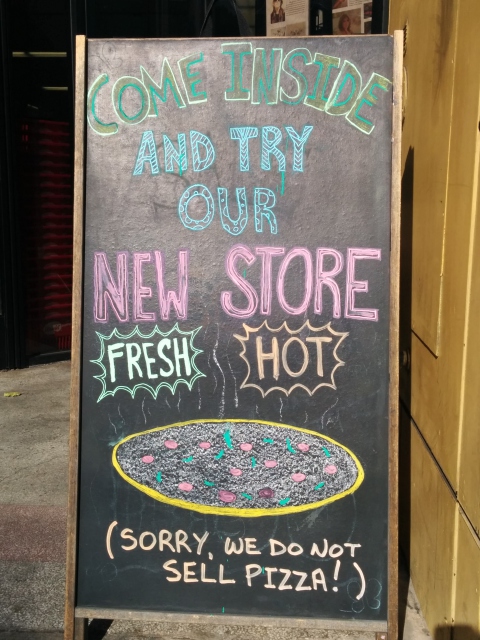 COME INSIDE
AND TRY
OUR
NEW STORE
FRESH HOT
(SORRY, WE DO NOT
SELL PIZZA!)